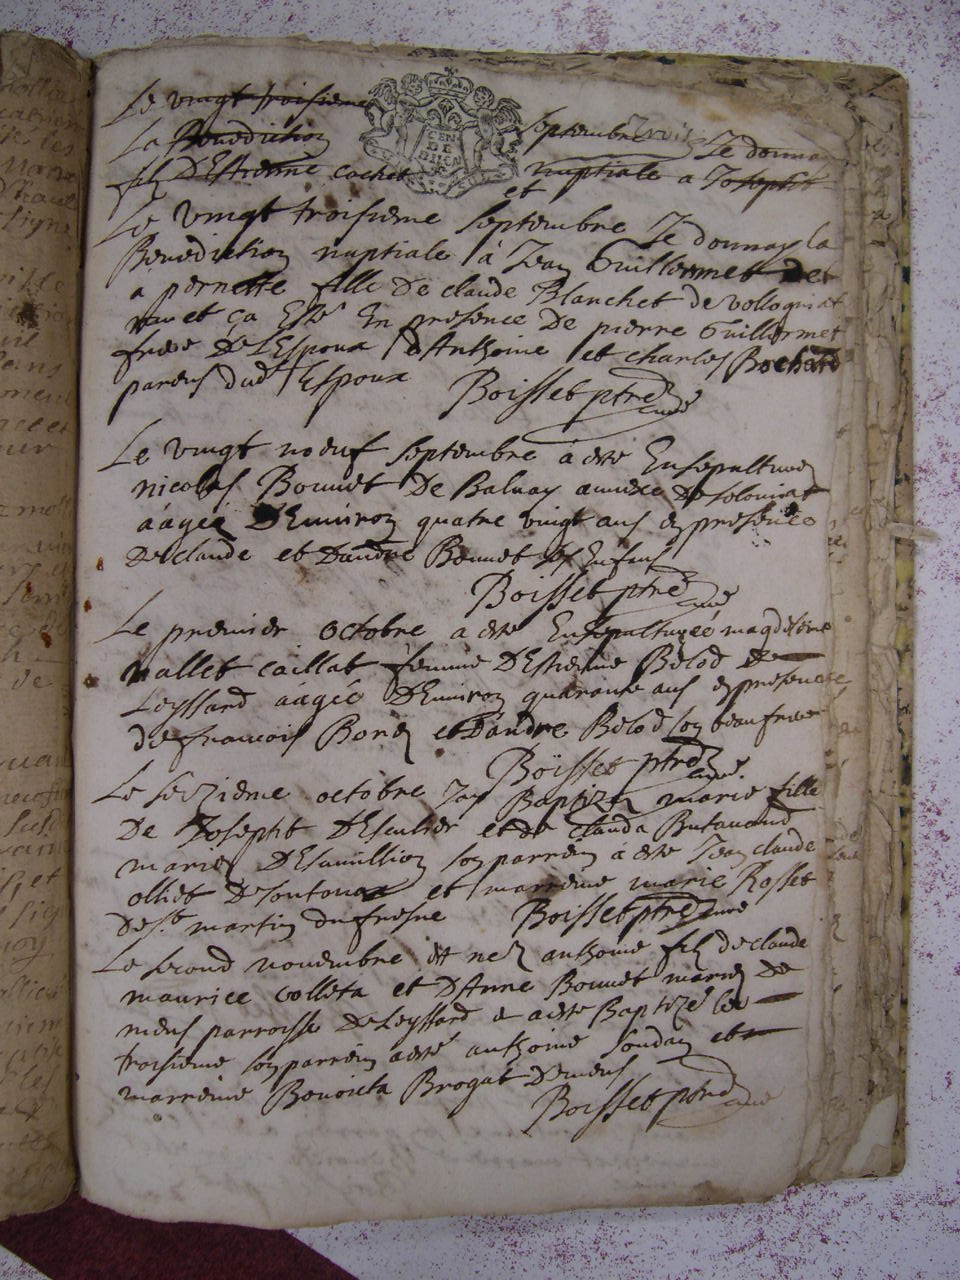 Le vingt troisieme septembre Je donnay
La Benediction nuptiale a Joseph
fils D'Estienne cochet et
CEN
DE
Le vingt troisieme septembre Je donnay la
Benediction nuptiale à Jean Guillermet
a pernette fille De claude Blanchet de vollogniat
et ça Esté En presence De pierre Guillermet
frere De L'Espoux d'Anthoine et charles Bochard
parens dud Espoux Boisset ptre curé
Le vingt noeuf septembre à esté Ensepulturé
nicolas Bonnet De Balvay annexe De soloniat
aagée D'Environ quatre vingt ans en presence
De claude et D'andre Bonnet ses Enfans
Boisset ptre curé
Le premier octobre a esté Ensepulturée magdeleine
vallet caillat femme D'Estienne Belod De
Leyssard aagée D'Environ quarante ans en presence
de francois Boren et D'andre Belod son beau frere
Boisset ptre curé
Le seizieme octobre Jay Baptizé marie fille
De Joseph et de Clauda
mariez son parrein à esté Jean claude
olliet et marreine marie Rosset
De St martin du fresne Boisset ptre curé
Le second novembre est nez anthoine fils de claude
maurice colleta et D'Anne Bonnet mariez De
mens parroisse De Leyssard e a esté Baptizé le
troisieme son parrein a esté anthoine soudan et
marreine Benoista Brogat De mens
Boisset ptre curé